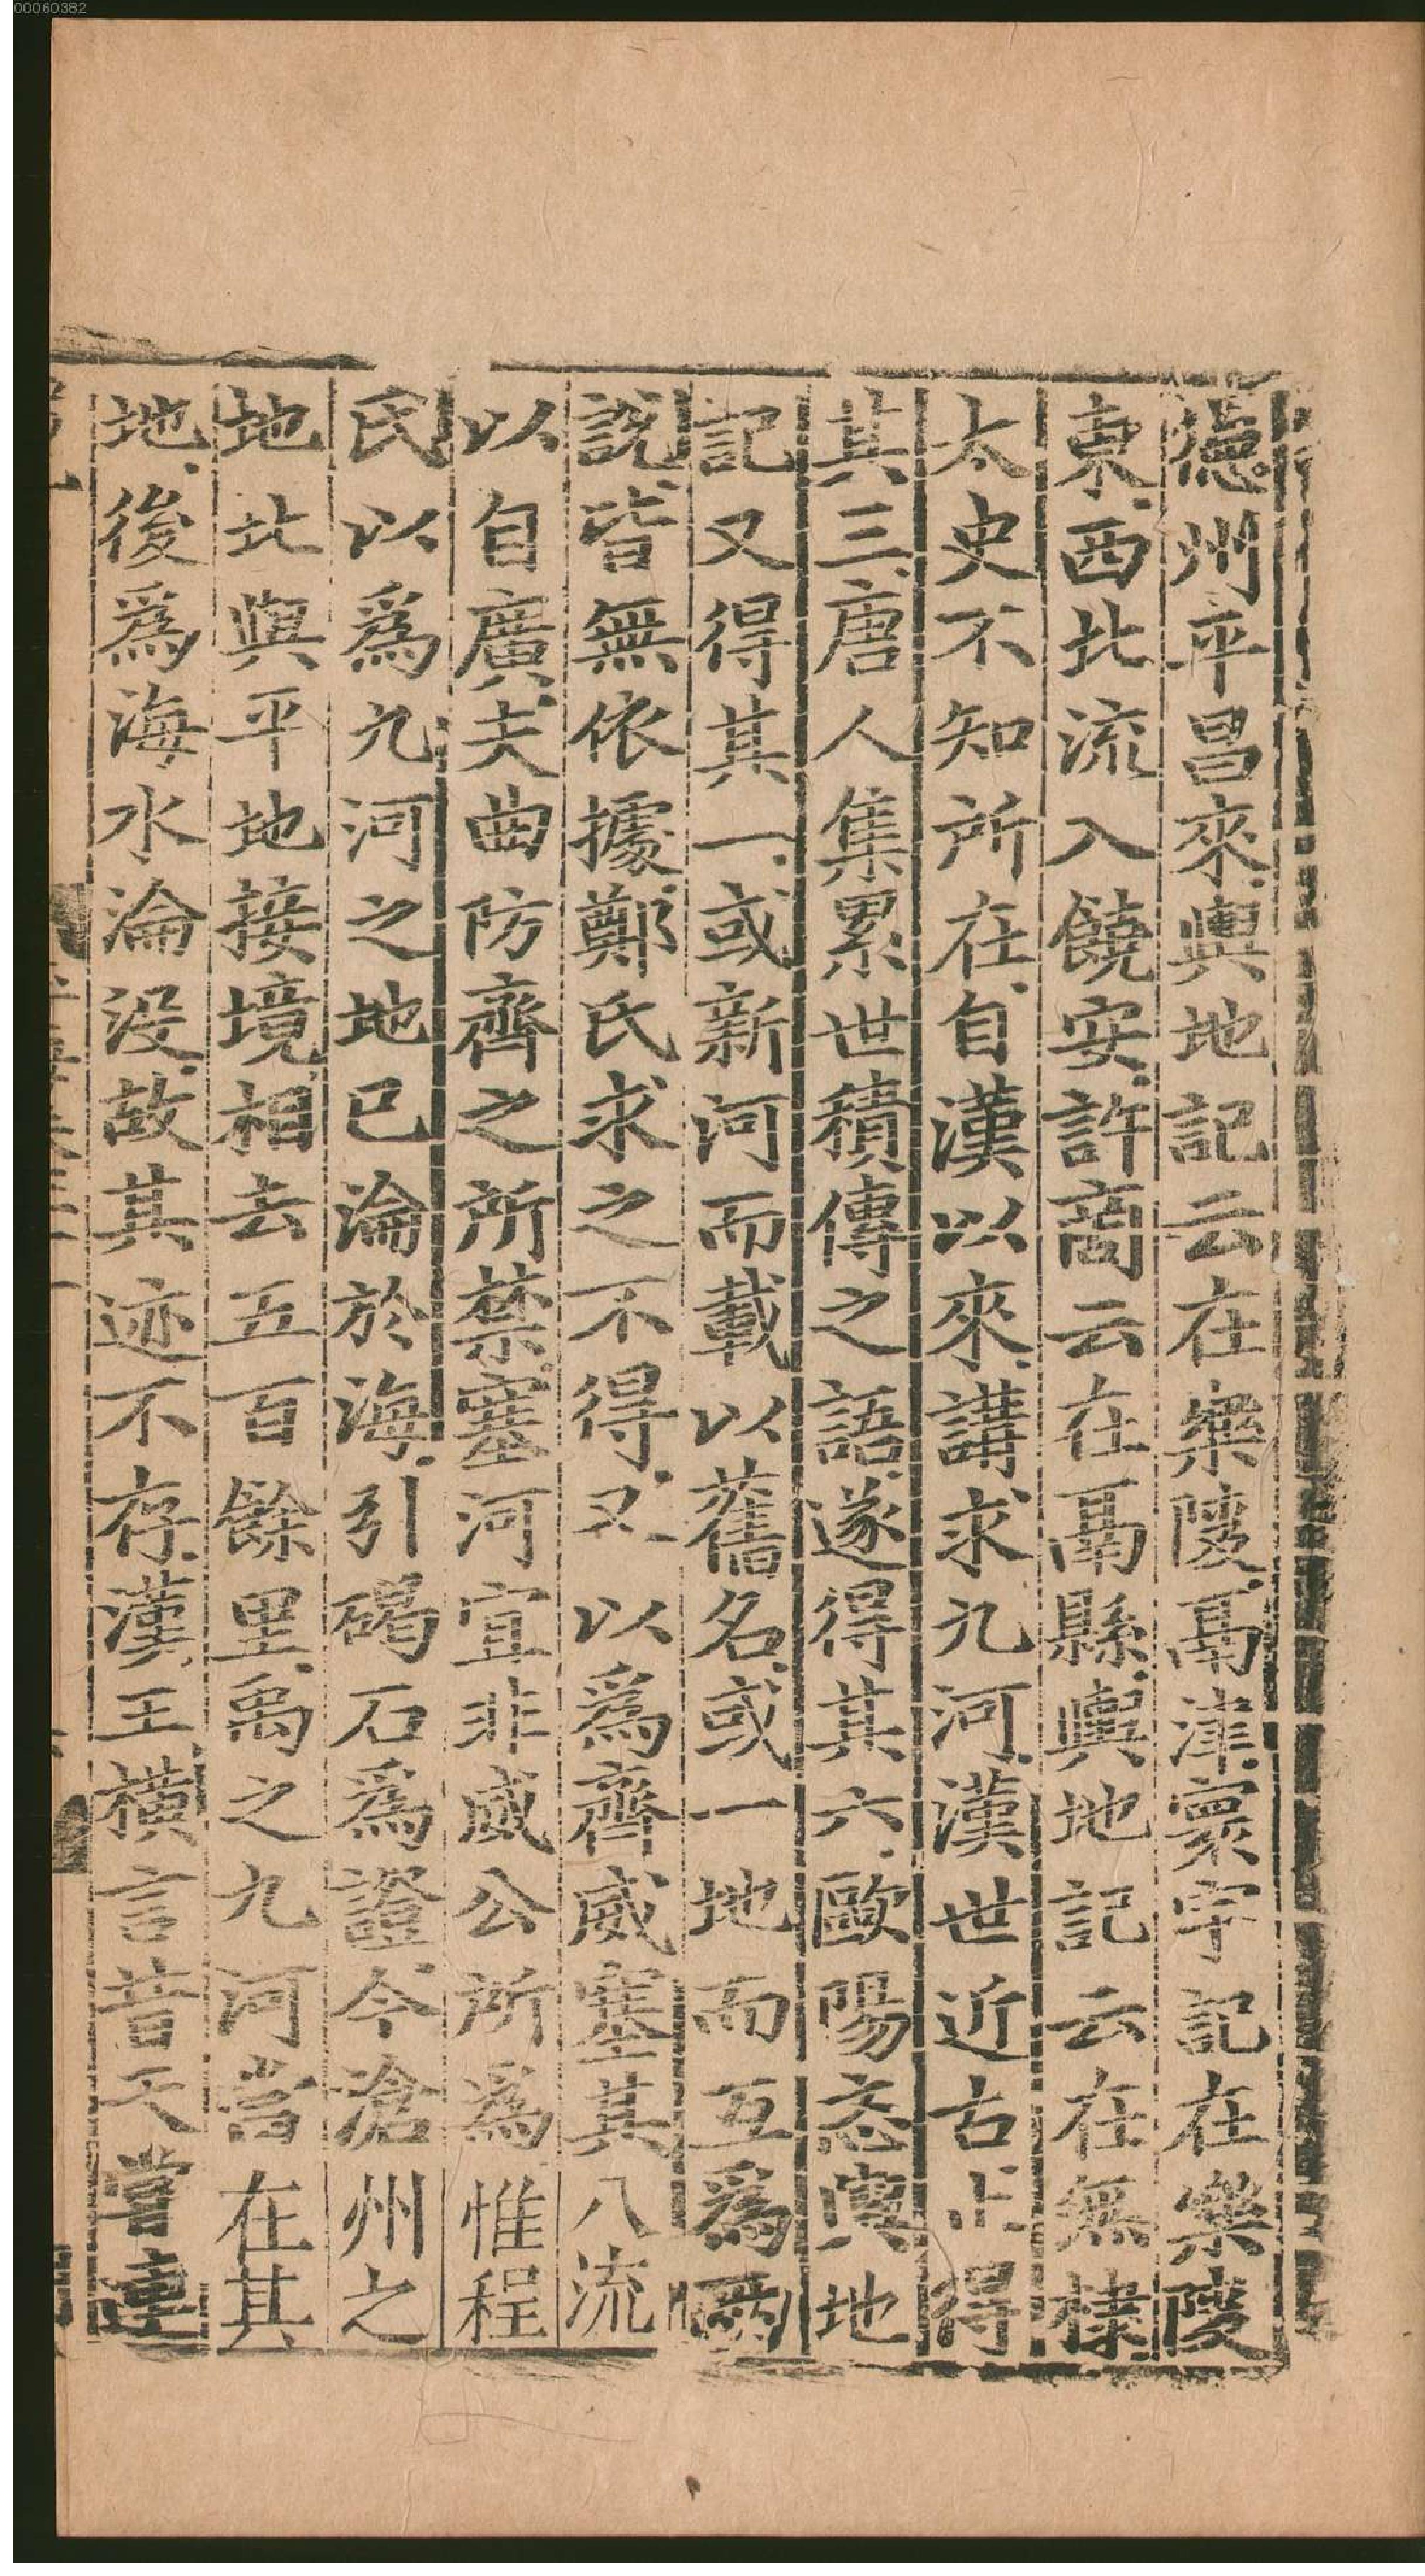 00060382
德州平昌來輿地記云在樂陵鬲津寰宇記在樂陵
東西北流入饒安許商云在鬲縣輿地記云在無棣
太史不知所在自漢以來講求九河漢世近古止得
其三唐人集累世積傳之語遂得其六歐陽忞輿地
記又得其一或新河而載以舊名或一地而互爲兩
說皆無依據鄭氏求之不得又以爲齊威塞其八流
以自廣夫曲防齊之所禁塞河宜非威公所爲惟程
氏以爲九河之地已淪於海引碣石爲證今滄州之
地北與平地接境相去五百餘里禹之九河當在其
地後爲海水淪没故其迹不存漢王橫言昔天嘗連